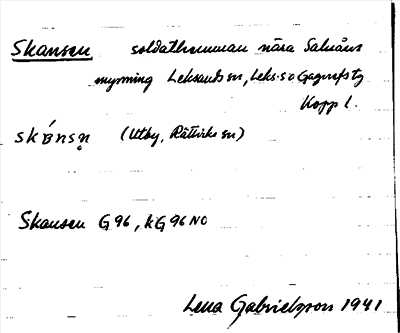 Skansen soldathemman nära Saluåns
mynning Leksands sn, Leks. s o Gagnefs tg
Kopp l.
skánsn̥ (Utby, Rättviks sn)
Skansen G 96, kG 96 NO
Lena Gabrielsson 1941